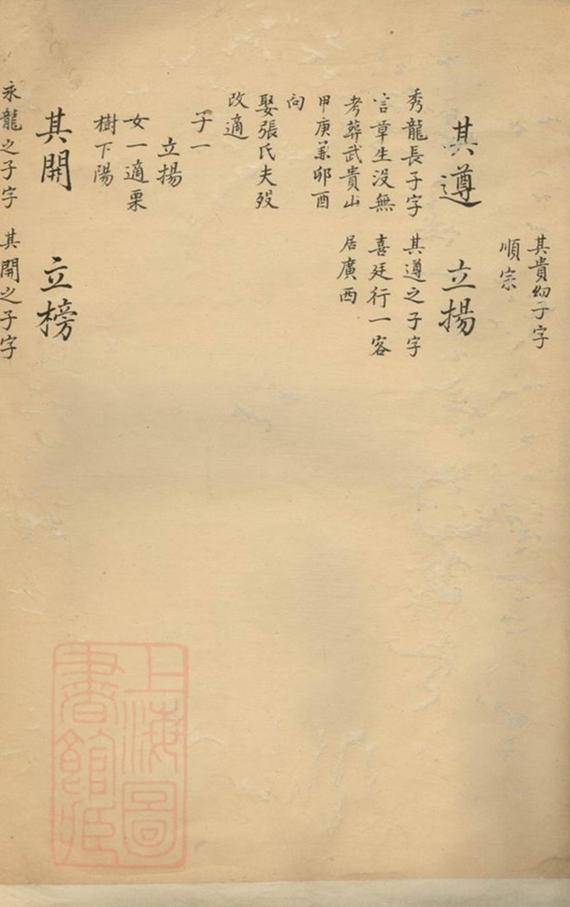 其貴幼子字
順宗
其遵
秀龍長子字
言章生没無
考葬武貴山
甲庚兼卯酉
向
娶張氏夫殁
改適
子一
立揚
女一適栗
樹下陽
立揚
其遵之子字
喜廷行一客
居廣西
其開
永龍之子字
立榜
其開之子字
上海圖
書館藏